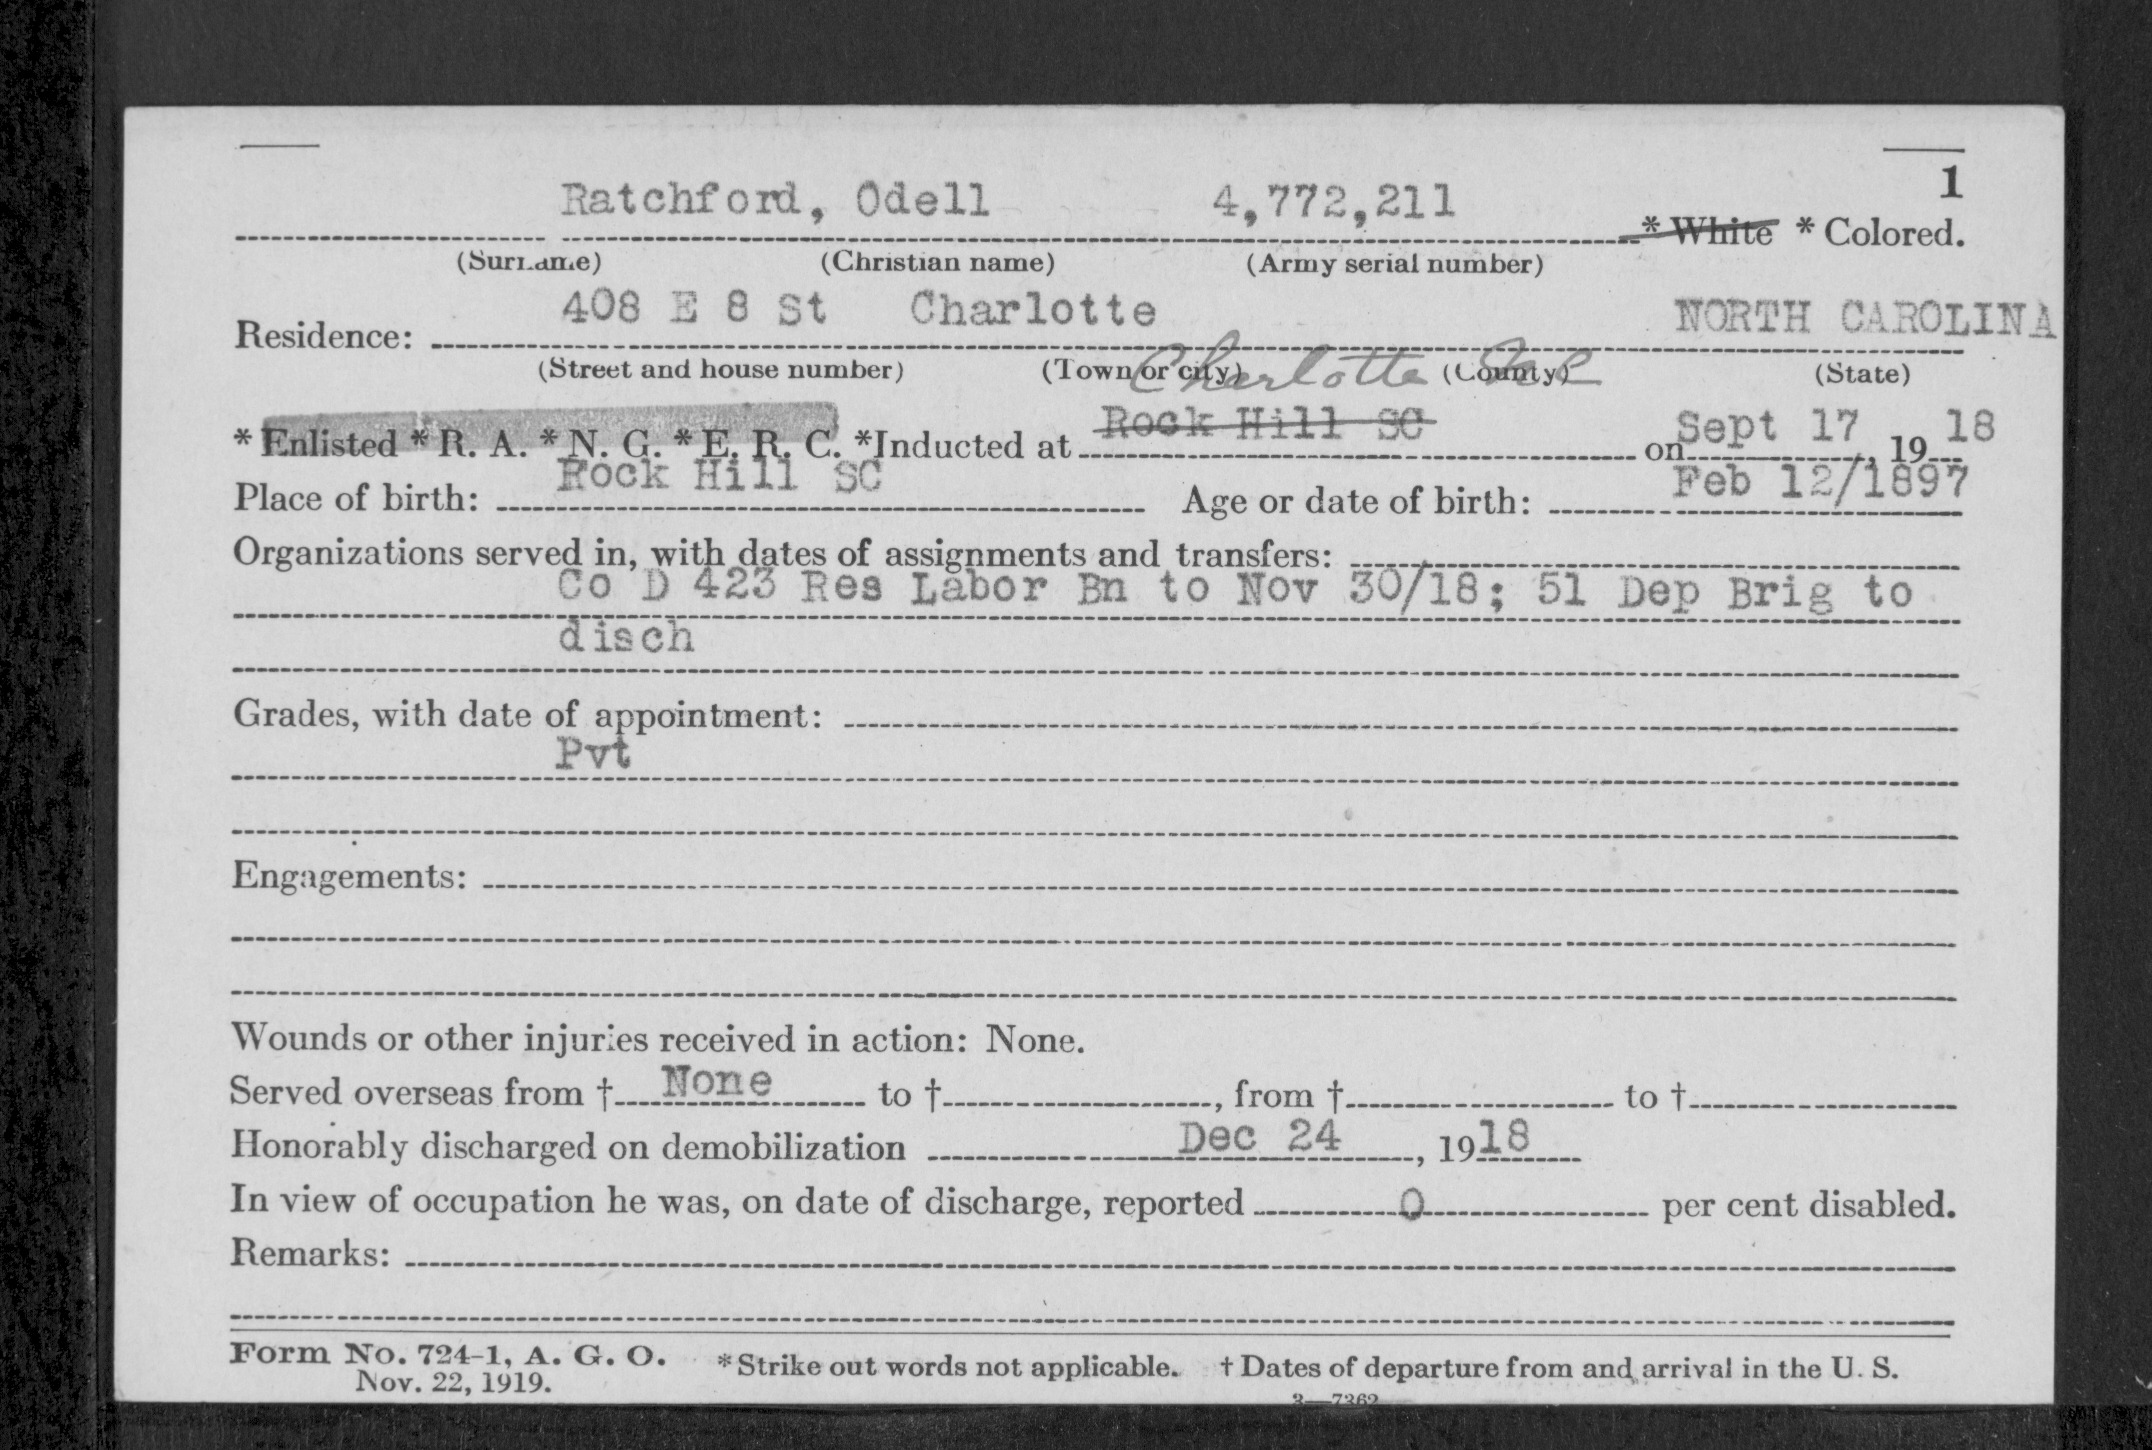 1
Ratchford, Odell 4,772,211 * White * Colored.
(Surname) (Christian name) (Army serial number)
408 E 8 St Charlotte NORTH CAROLINA
Residence:
(Street and house number) (Town or city) (County) (State)
Charlotte NC
Rock Hill SC Sept 17 18
* Enlisted * R. A. * N. G. * E. R. C. *Inducted at on , 19
Rock Hill SC Feb 12/1897
Place of birth: Age or date of birth:
Organizations served in, with dates of assignments and transfers:
Co D 423 Res Labor Bn to Nov 30/18; 51 Dep Brig to
disch
Grades, with date of appointment:
Pvt
Engagements:
Wounds or other injuries received in action: None.
Served overseas from † None to † , from † to †
Honorably discharged on demobilization Dec 24 , 1918
In view of occupation he was, on date of discharge, reported 0 per cent disabled.
Remarks:
Form No. 724-1, A. G. O. * Strike out words not applicable. † Dates of departure from and arrival in the U. S.
Nov. 22, 1919.
3—7362